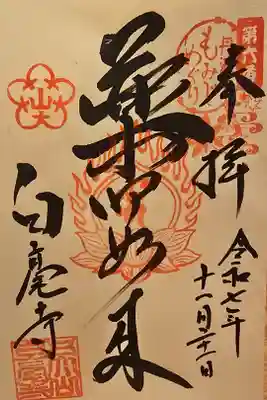 奉拝
令和七年
十一月二十一日
第六番
もみじ
めぐり
薬師如来
山
白毫寺